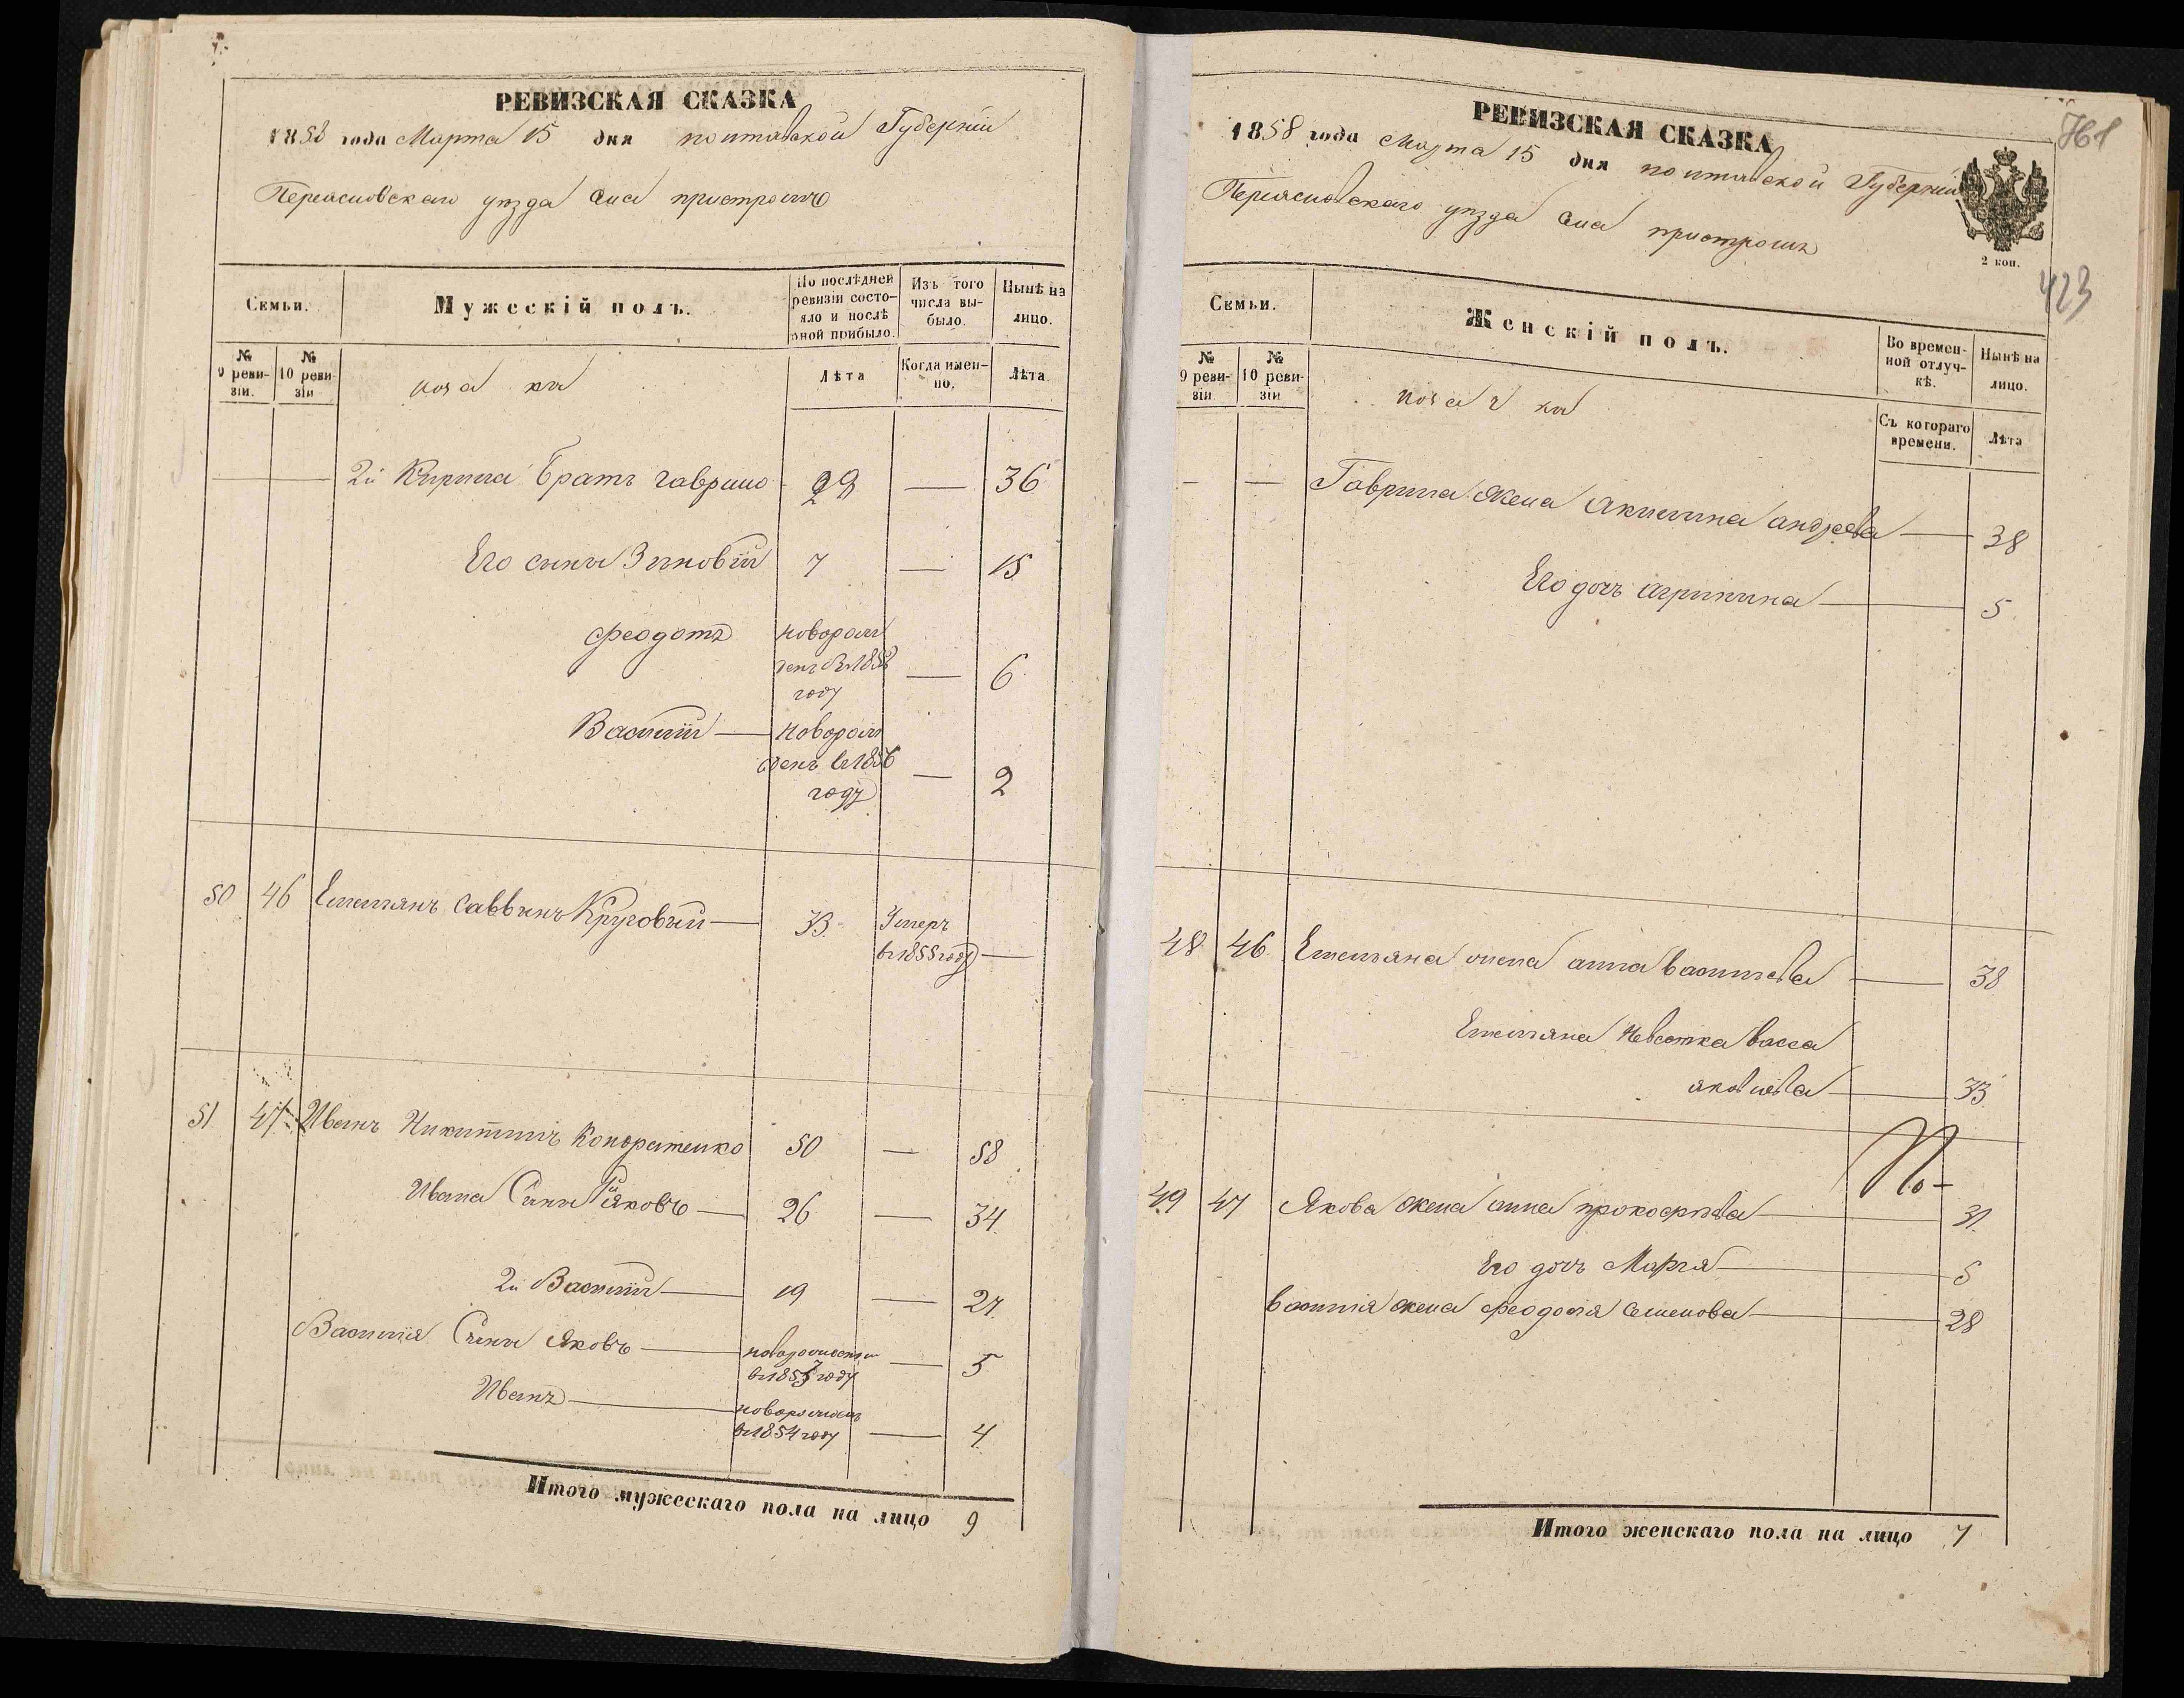 РЕВИЗСКАЯ СКАЗКА
1858 года Марта 15 дня полтавской Губерніи
Переясловскаго уѣзда Села пристромъ
Семьи.
Мужескій полъ.
По послѣдней ревизіи состояло и послѣ оной прибыло.
Изъ того числа выбыло.
Нынѣ на лицо.
№ 9 ревизіи.
№ 10 ревизіи
Лѣта
Когда именно.
Лѣта.
2й Кирила Братъ гаврило 29 — 36
Его сынъ Зиновій 7 — 15
Феодотъ
новорож
денъ в 1852
году
— 6
Василій — новорож
денъ в 1856
году
— 2
50 46 Емельянъ Саввинъ Круговый — 33 Умеръ
в 1855 году —
51 47 Иванъ Никитинъ Кондратенко 50 — 58
Ивана Сынъ 1й яковъ — 26 — 34
2й Василій — 19 — 27
Василія Сынъ Яковъ — новорожденъ
в 1853 году — 5
Иванъ — новорожденъ
в 1854 году — 4
Итого мужескаго пола на лицо 9
РЕВИЗСКАЯ СКАЗКА
1858 года Марта 15 дня полтавской Губерніи
Переясловскаго уѣзда Села пристромъ
2 коп.
423
Семьи.
Женскій полъ.
Во временной отлучкѣ.
Нынѣ на лицо.
№ 9 ревизіи
№ 10 ревизіи
Съ котораго времени.
Лѣта
Гаврила Жена Акилина андреева — 38
Его дочь агрипина — 5
48 46 Емельяна жена анна васильева — 38
Емельяна Невестка васса
яковлева — 33
49 47 Якова Жена анна прокофьева — 31
Его дочь Марья — 5
василія жена феодосія Семенова — 28
Итого женскаго пола на лицо 7